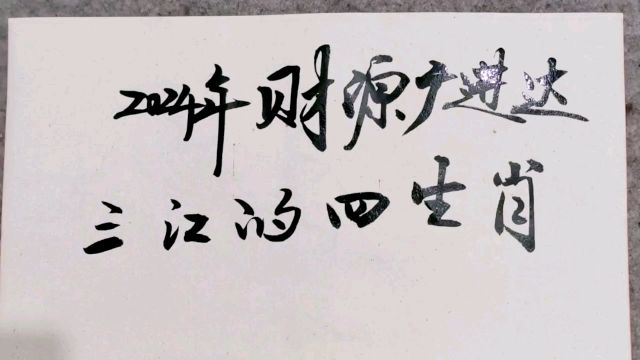 2024年财源广进达
三江的四生肖